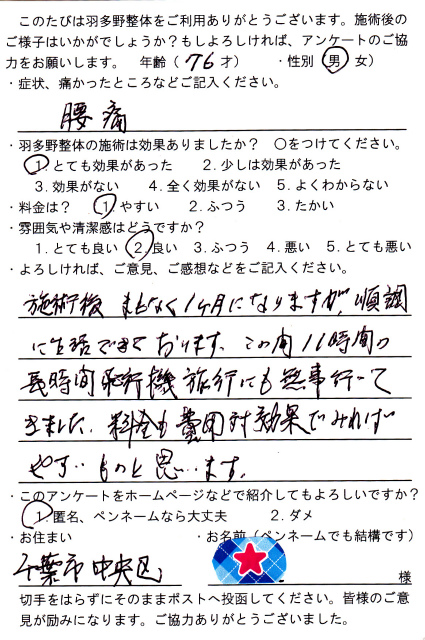 このたびは羽多野整体をご利用ありがとうございます。施術後の
ご様子はいかがでしょうか？もしよろしければ、アンケートのご協
力をお願いします。　年齢（ 76 才）　　・性別（男 女）
・症状、痛かったところなどご記入ください。
腰痛
・羽多野整体の施術は効果ありましたか？　○をつけてください。
1. とても効果があった　　2. 少しは効果があった
3. 効果がない　　4. 全く効果がない　5. よくわからない
・料金は？　1. やすい　　2. ふつう　　3. たかい
・雰囲気や清潔感はどうですか？
1. とても良い　2. 良い　3. ふつう　4. 悪い　5. とても悪い
・よろしければ、ご意見、ご感想などをご記入ください。
施術後 まもなく1ヶ月になりますが、順調
に生活できております。この間11時間の
長時間飛行機旅行にも無事行って
きました。料金も費用対効果でみれば
やすいものと思います。
・このアンケートをホームページなどで紹介してもよろしいですか？
1. 匿名、ペンネームなら大丈夫　　2. ダメ
・お住まい　　・お名前（ペンネームでも結構です）
千葉市中央区　　様
切手をはらずにそのままポストへ投函してください。皆様のご意
見が励みになります。ご協力ありがとうございました。